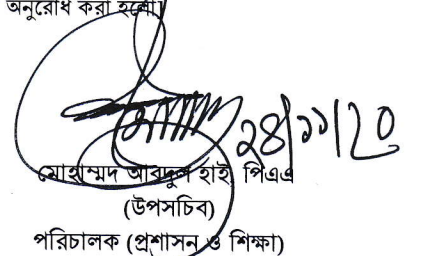 অনুরোধ করা হলো।
২৪/১১/২০
মোহাম্মদ আবদুল হাই, পিএএ
(উপসচিব)
পরিচালক (প্রশাসন ও শিক্ষা)